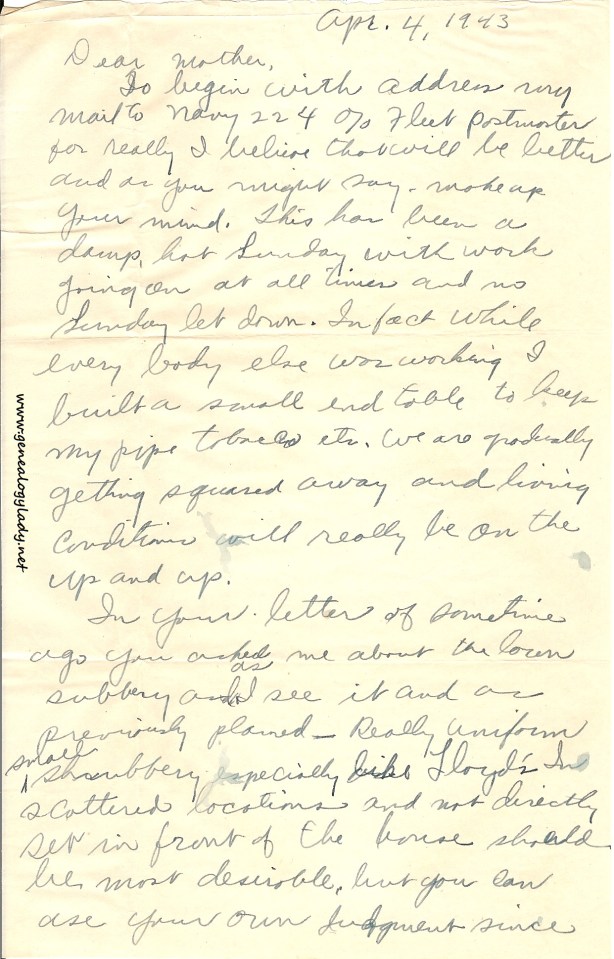 Apr. 4, 1943
Dear mother,
To begin with address my
mail to Navy 224 c/o Fleet Postmaster
for really I believe that will be better
and as you might say - make up
your mind. This has been a
damp, hot Sunday with work
going on at all times and no
Sunday let down. In fact while
every body else was working I
built a small end table to keep
my pipe tobacco etc. We are gradually
getting squared away and living
conditions will really be on the
up and up.
In your letter of sometime
ago you asked me about the lawn
subbery as I see it and as
previously planed - Really uniform
small shrubbery especially like Lloyd's In
scattered locations and not directly
set in front of the house should
be most desirable, but you can
use your own Judgment since
www.genealogylady.net